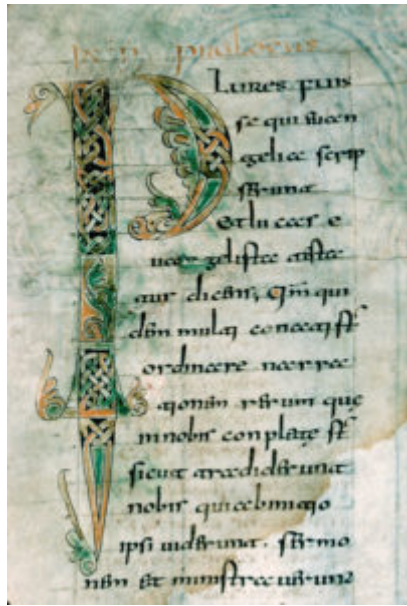 prologus
PLURES FUIS
se qui euan
gelia scrip
serunt
et lucas e
uangelista testa
tur dicens, Qm̄ qui
dem multi conati st̄
ordinare narra
tionem rerum quę
in nobis conpletę st̄
sicut tradiderunt
nobis qui ab initio
ipsi uiderunt. sermo
nem et ministrauerunt